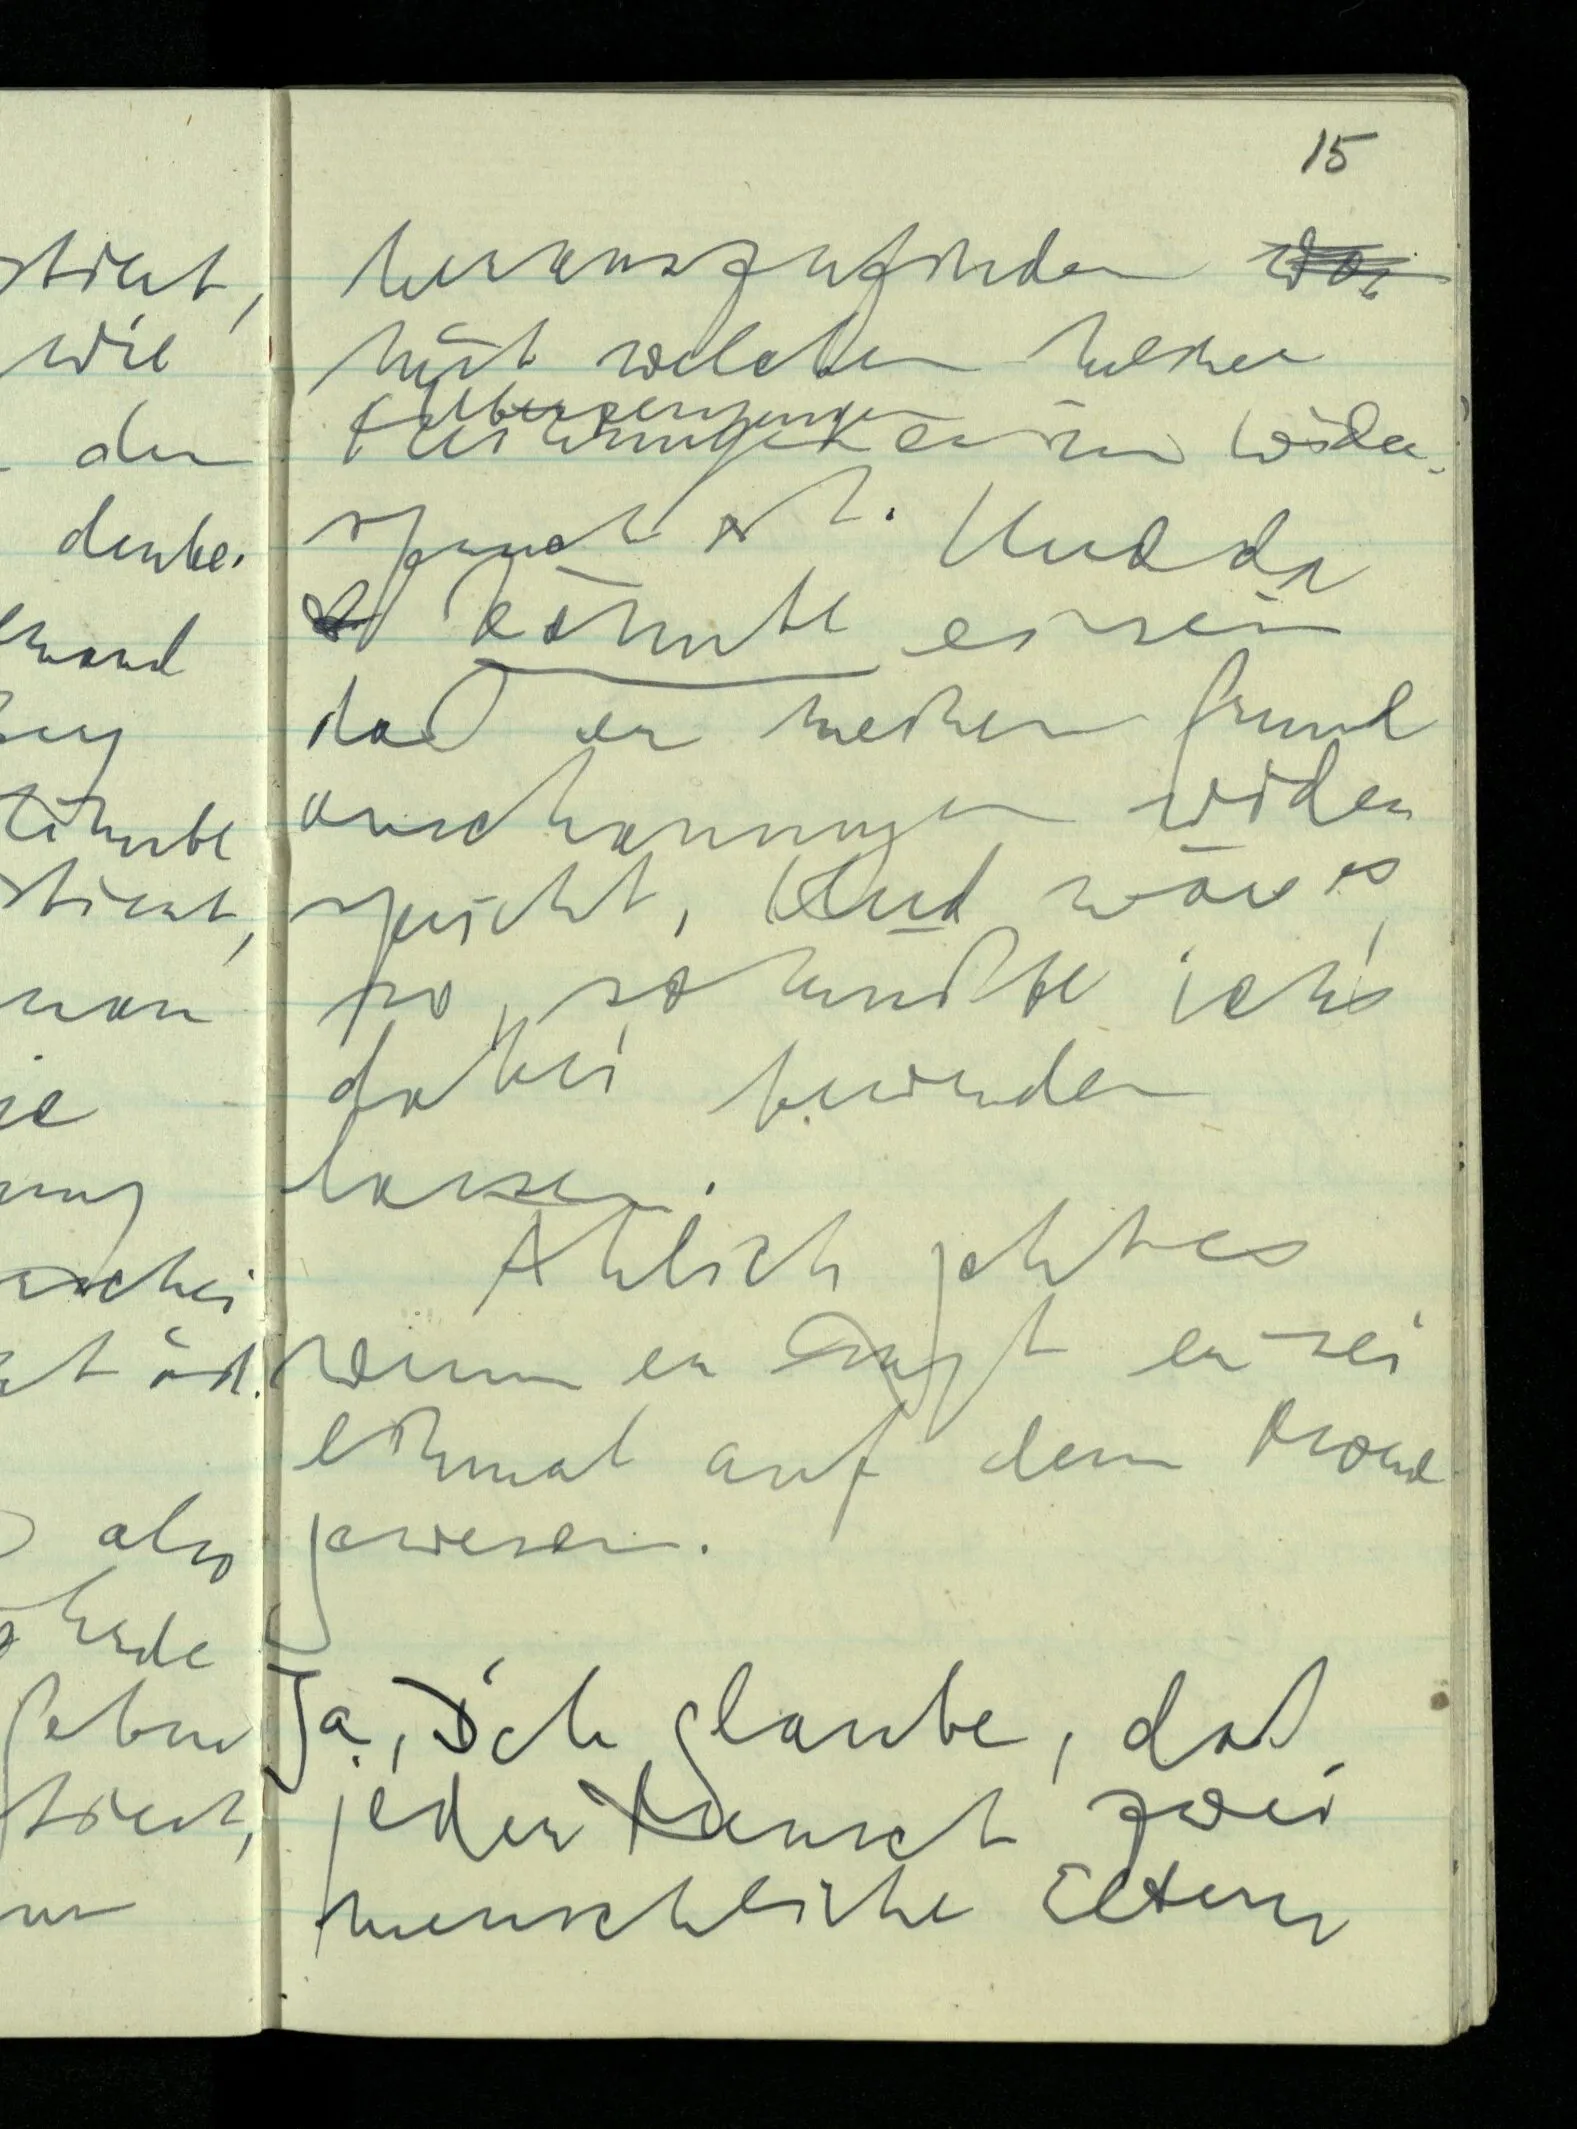 15
tiert,
wie
den
denke.
jemand
könnte
tiert,
man
ie
ung
also
Leben
tiert,
herauszufinden
mit welchen meiner
Überzeugungen
Meinungen er im Wider-
spruch ist. Und da
könnte es sein
daß er meinen Grund
anschauungen wider
spricht, Und wäre es
so, so müßte ich's
dabei bewenden
lassen.
Ählich geht es
wenn er sagt er sei
einmal auf dem Mond
gewesen.
Ja, ich glaube, daß
jeder Mensch zwei
menschliche Eltern